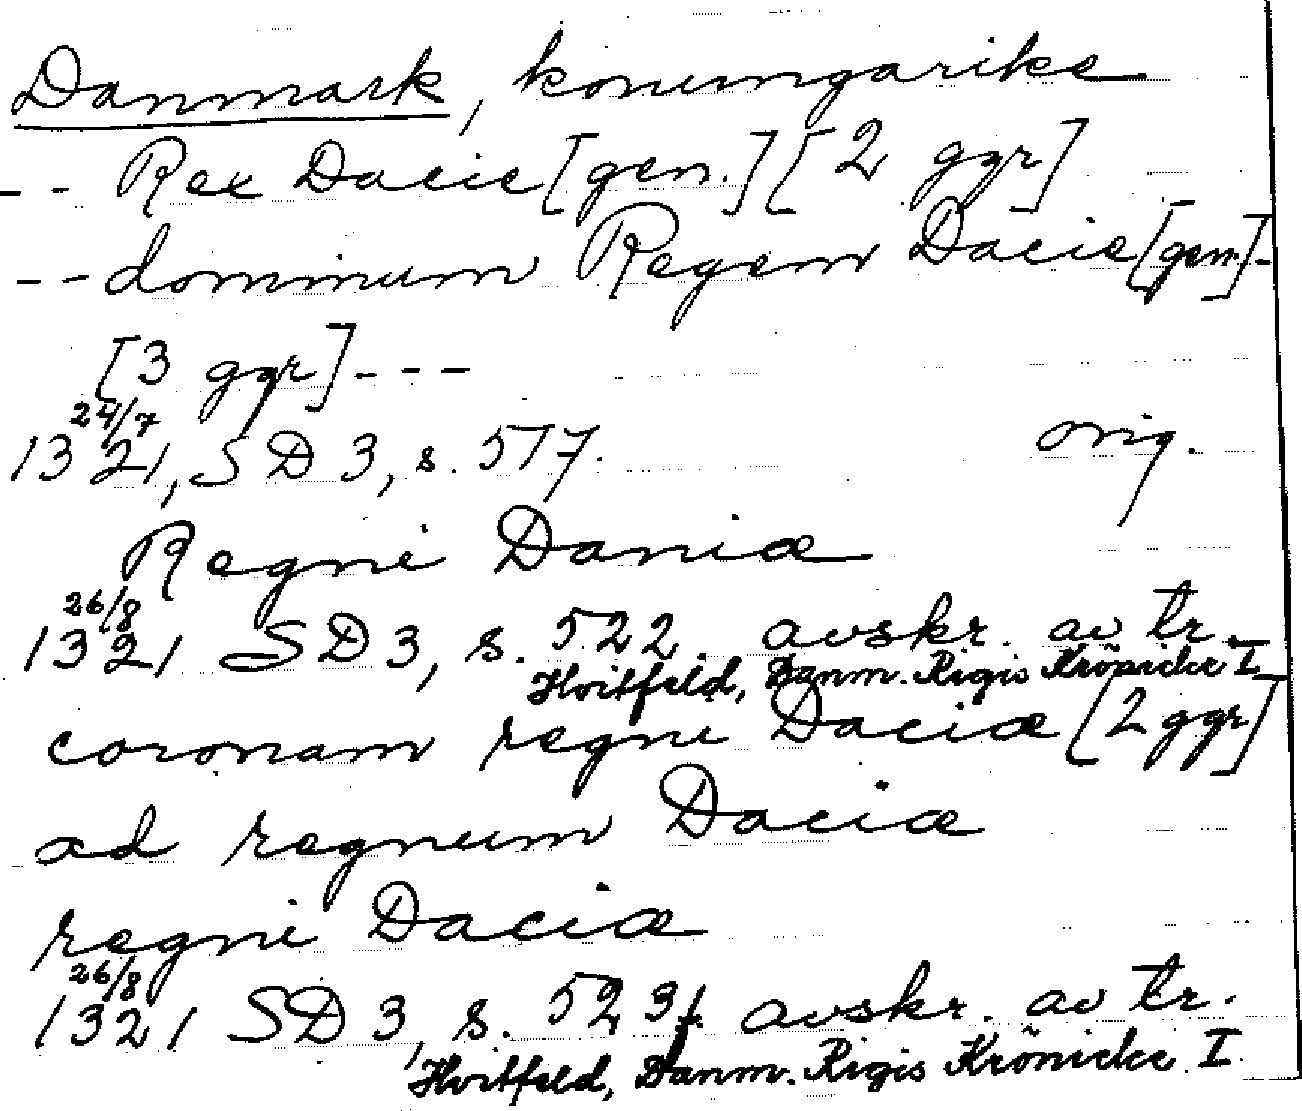 Danmark, konungarike
- - Rex Dacie [gen.] [2 ggr]
- - dominum Regem Dacie [gen.] -
[3 ggr] - - -
24/7
1321, SD 3, s. 517. orig.
Regni Daniæ
26/8
1321 SD 3, s. 522. avskr. av tr.
Hvitfeld, Danm. Rigis Krönicke I
coronam regni Daciæ [2 ggr]
ad regnum Daciæ
regni Daciæ
26/8
1321 SD 3, s. 523f. avskr. av tr.
Hvitfeld, Danm. Rigis Krönicke I.